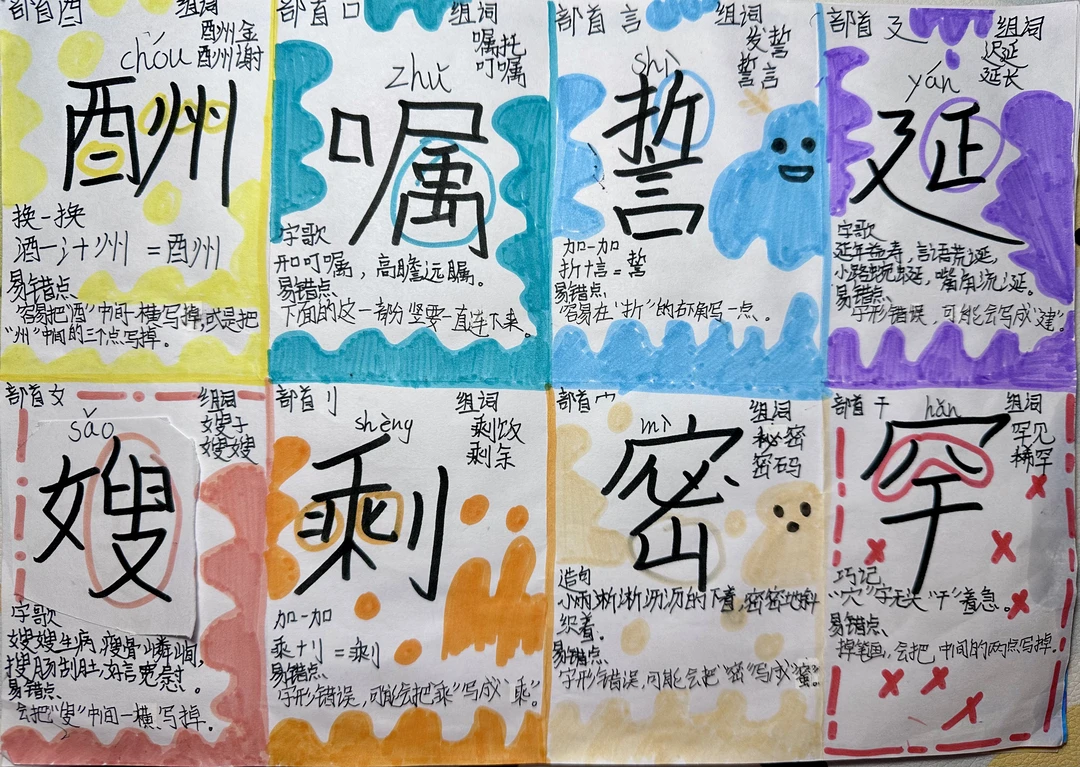 部首酉
组词
酬金
酬谢
chóu
酬
换一换
酒一氵+州 =酬
易错点、
容易把“酉”中间一横写掉,或是把
“州”中间的三个点写掉。
部首口
组词
嘱托
叮嘱
zhǔ
嘱
字歌
和叮嘱，高瞻远瞩。
易错点
下面的这一部分竖要一直连下来。
部首 言
组词
发誓
誓言
shì
誓
加一加
折+言=誓
易错点
容易在“折”的右角写一点.
部首 廴
组词
迟延
延长
yán
延
字歌
延年益寿，言语荒诞，
小路蜿蜒，嘴角流涎。
易错点
字形错误，可能会写成“建”。
部首女
组词
嫂子
嫂嫂
sǎo
嫂
字歌
嫂嫂生病，瘦骨嶙峋，
搜肠刮肚，好言宽慰。
易错点、
会把“叟”中间一横写掉。
部首刂
组词
剩饭
剩余
shèng
剩
加一加
乘+刂=剩
易错点、
字形错误，可能会把“乘”写成“乘”。
部首宀
组词
秘密
密码
mì
密
造句
小雨淅淅沥沥的下着，密密地斜
织着。
易错点、
字形错误，可能会把“密”写成“蜜”。
部首干
组词
罕见
稀罕
hǎn
罕
巧记
“穴”字无头“干”着急。
易错点、
掉笔画，会把中间的两点写掉。